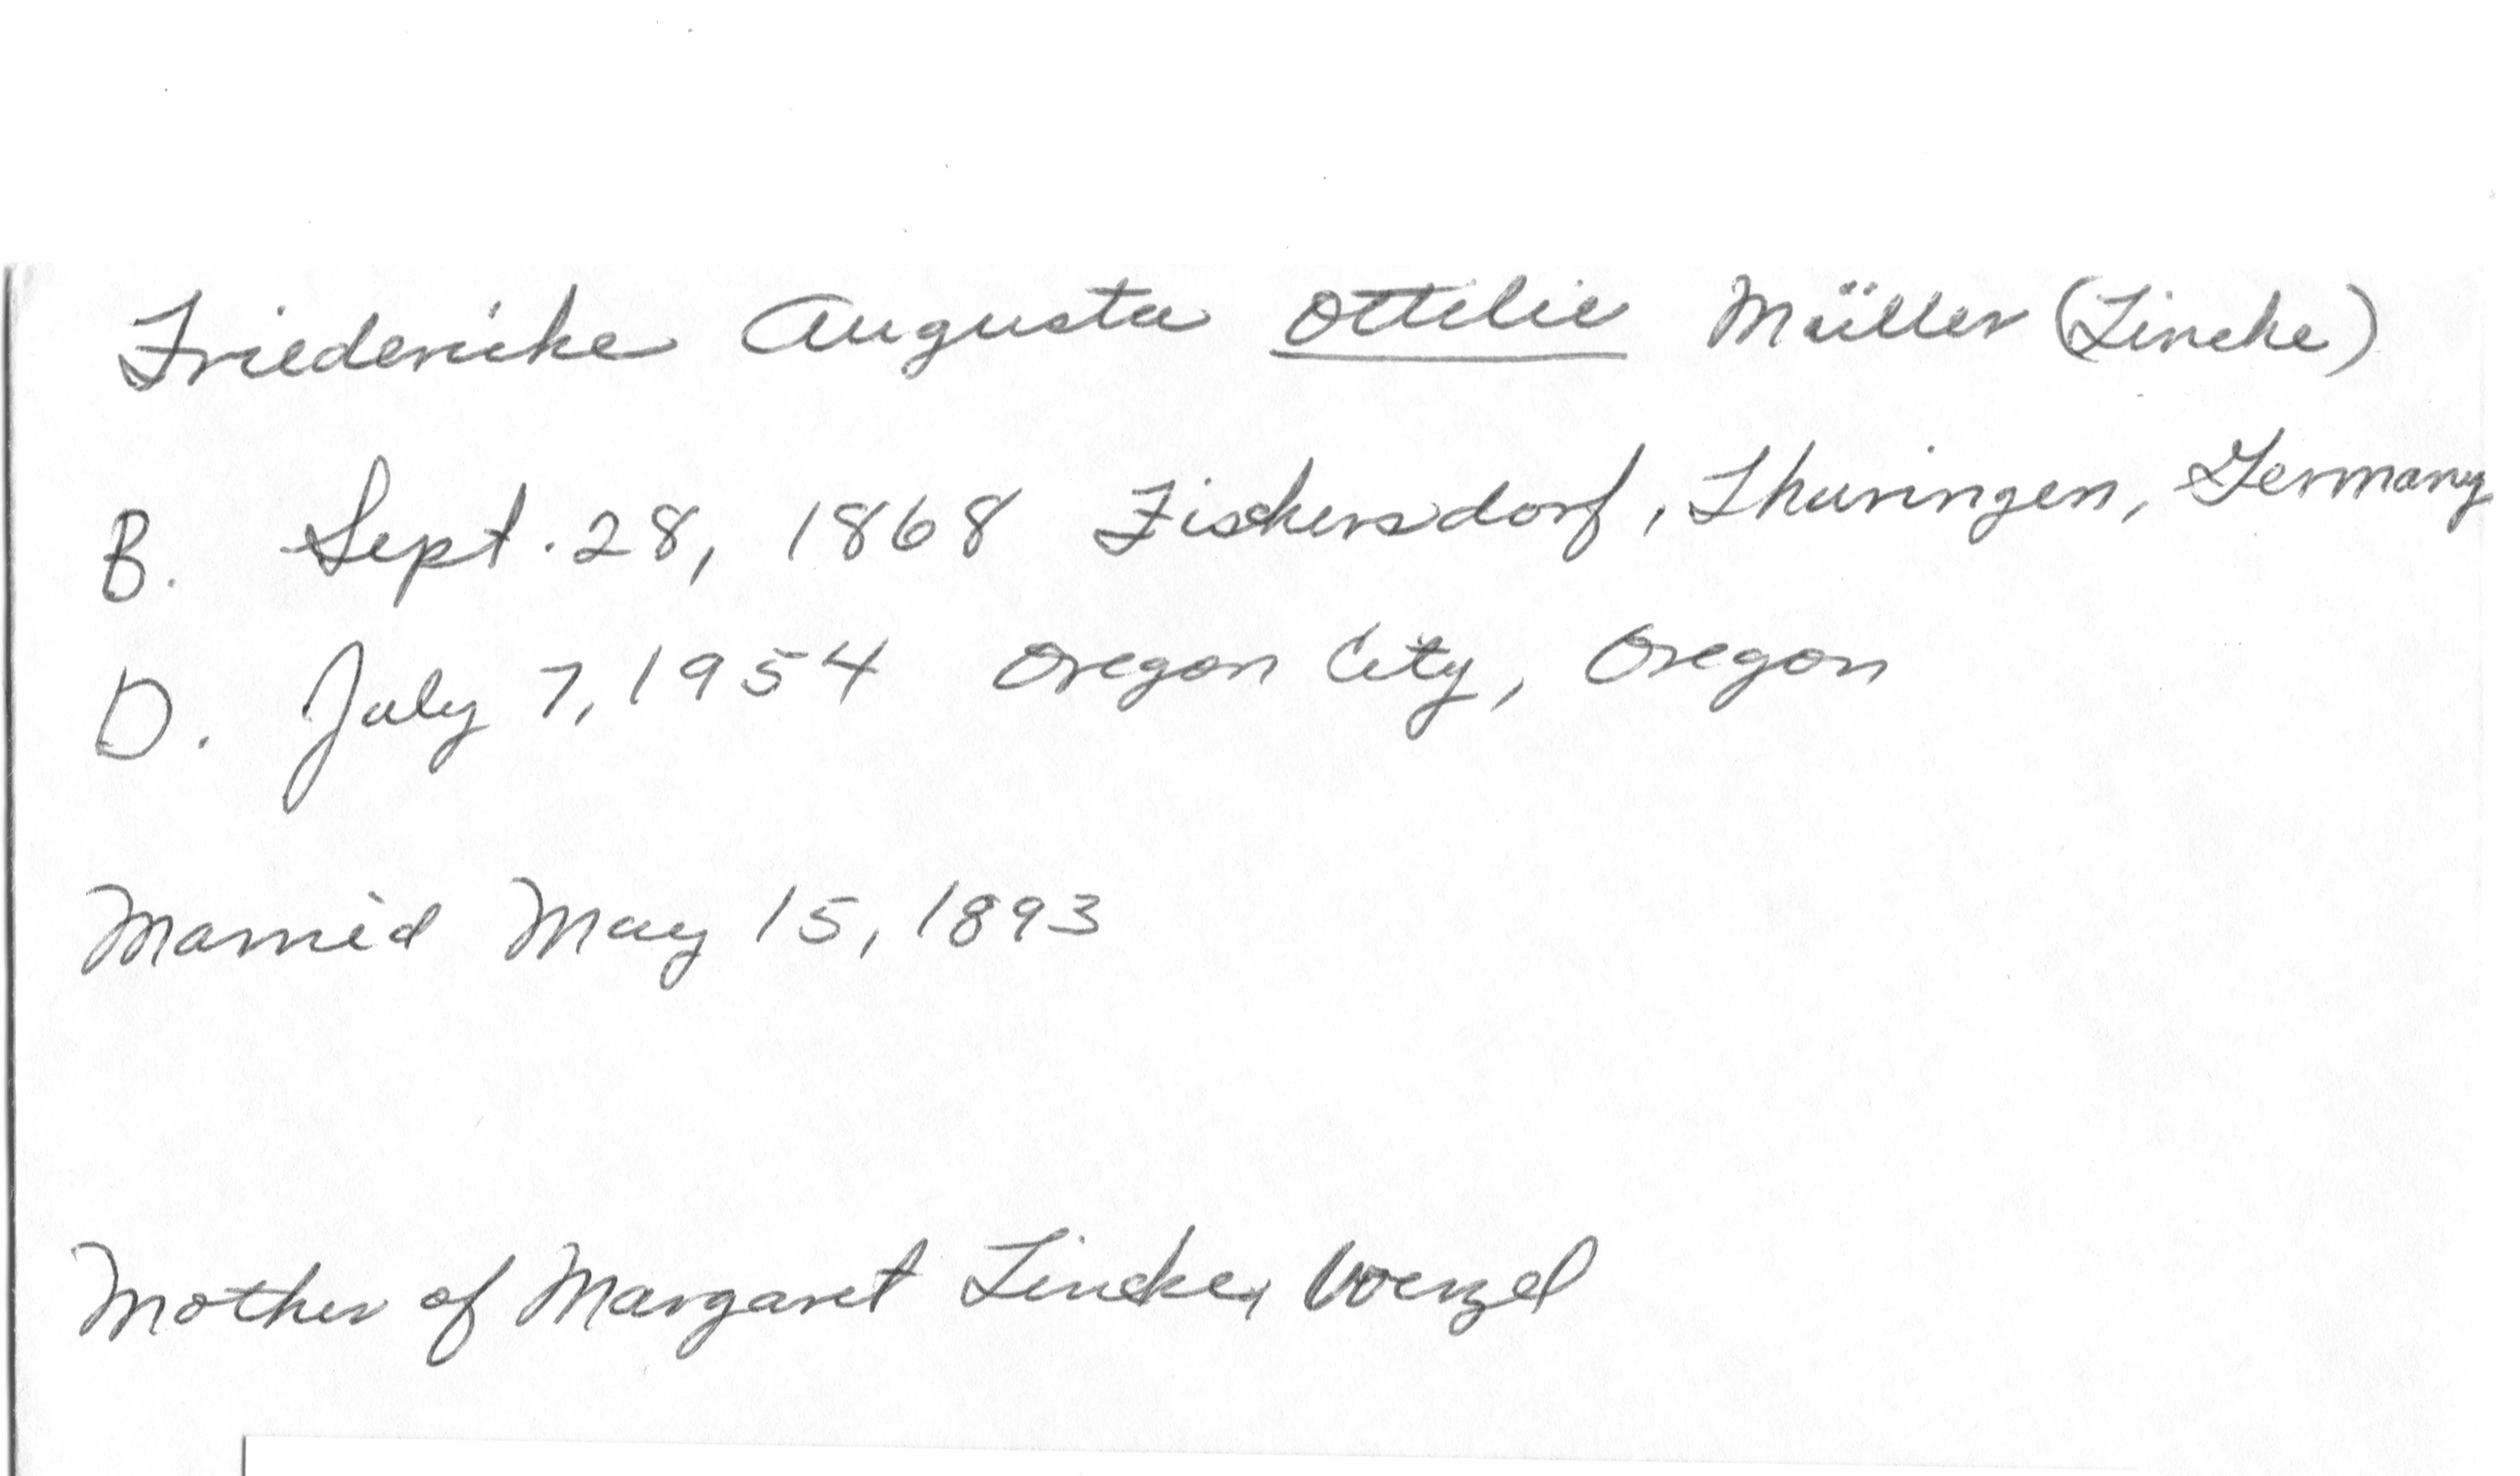 Friedericke Augusta Ottilie Müller (Lincke)
B. Sept. 28, 1868 Fischersdorf, Thuringen, Germany
D. July 7, 1954 Oregon City, Oregon
Married May 15, 1893
Mother of Margaret Lincke, Wenzel